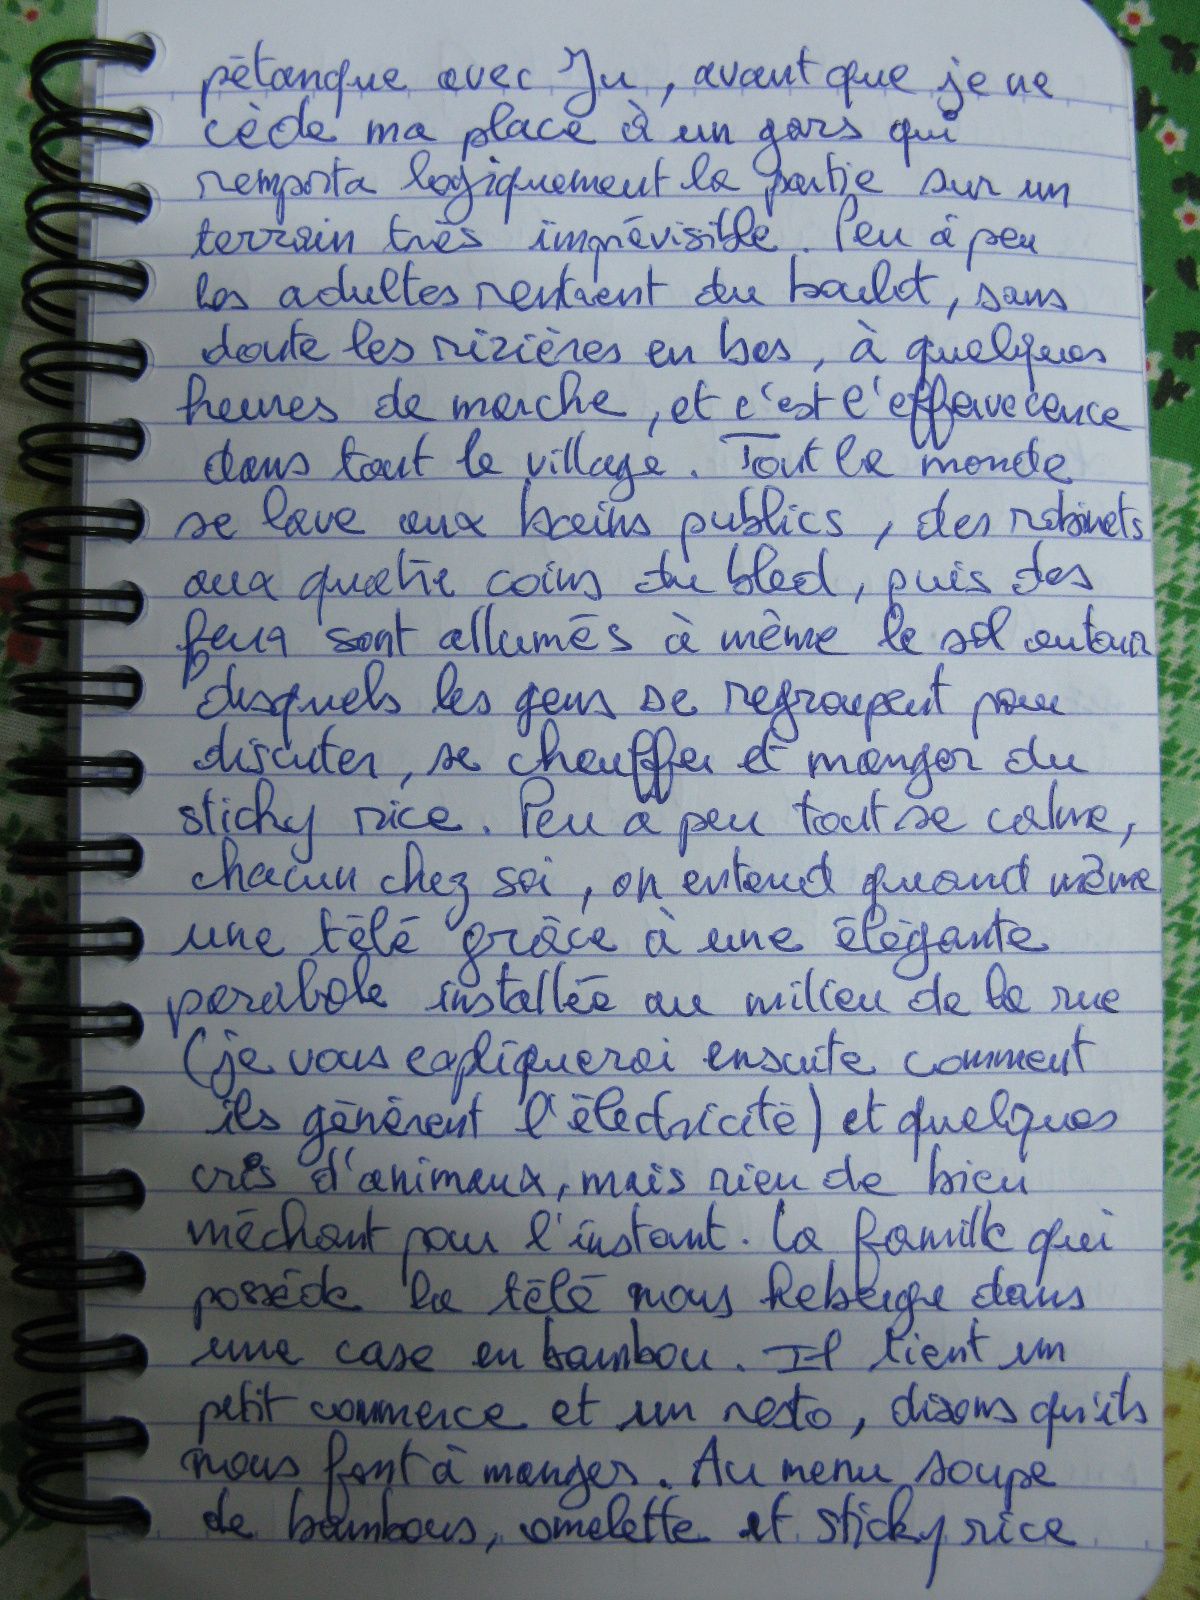 pétanque avec Ju, avant que je ne
cède ma place à un gars qui
remporta logiquement la partie sur un
terrain très imprévisible. Peu à peu
les adultes rentrent du boulot, sans
doute les rizières en bas, à quelques
heures de marche, et c'est l'effervecence
dans tout le village. Tout le monde
se lave aux bains publics, des robinets
aux quatre coins du bled, puis des
feux sont allumés à même le sol autour
desquels les gens se regroupent pour
discuter, se chauffer et manger du
sticky rice. Peu a peu tout se calme,
chacun chez soi, on entend quand même
une télé grâce à une élégante
parabole installée au milieu de la rue
(je vous expliquerai ensuite comment
ils génèrent l'électricité) et quelques
cris d'animaux, mais rien de bien
méchant pour l'instant. La famille qui
possède la télé nous heberge dans
une case en bambou. Il tient un
petit commerce et un resto, disons qu'ils
nous font à manger. Au menu soupe
de bambous, omelette et sticky rice